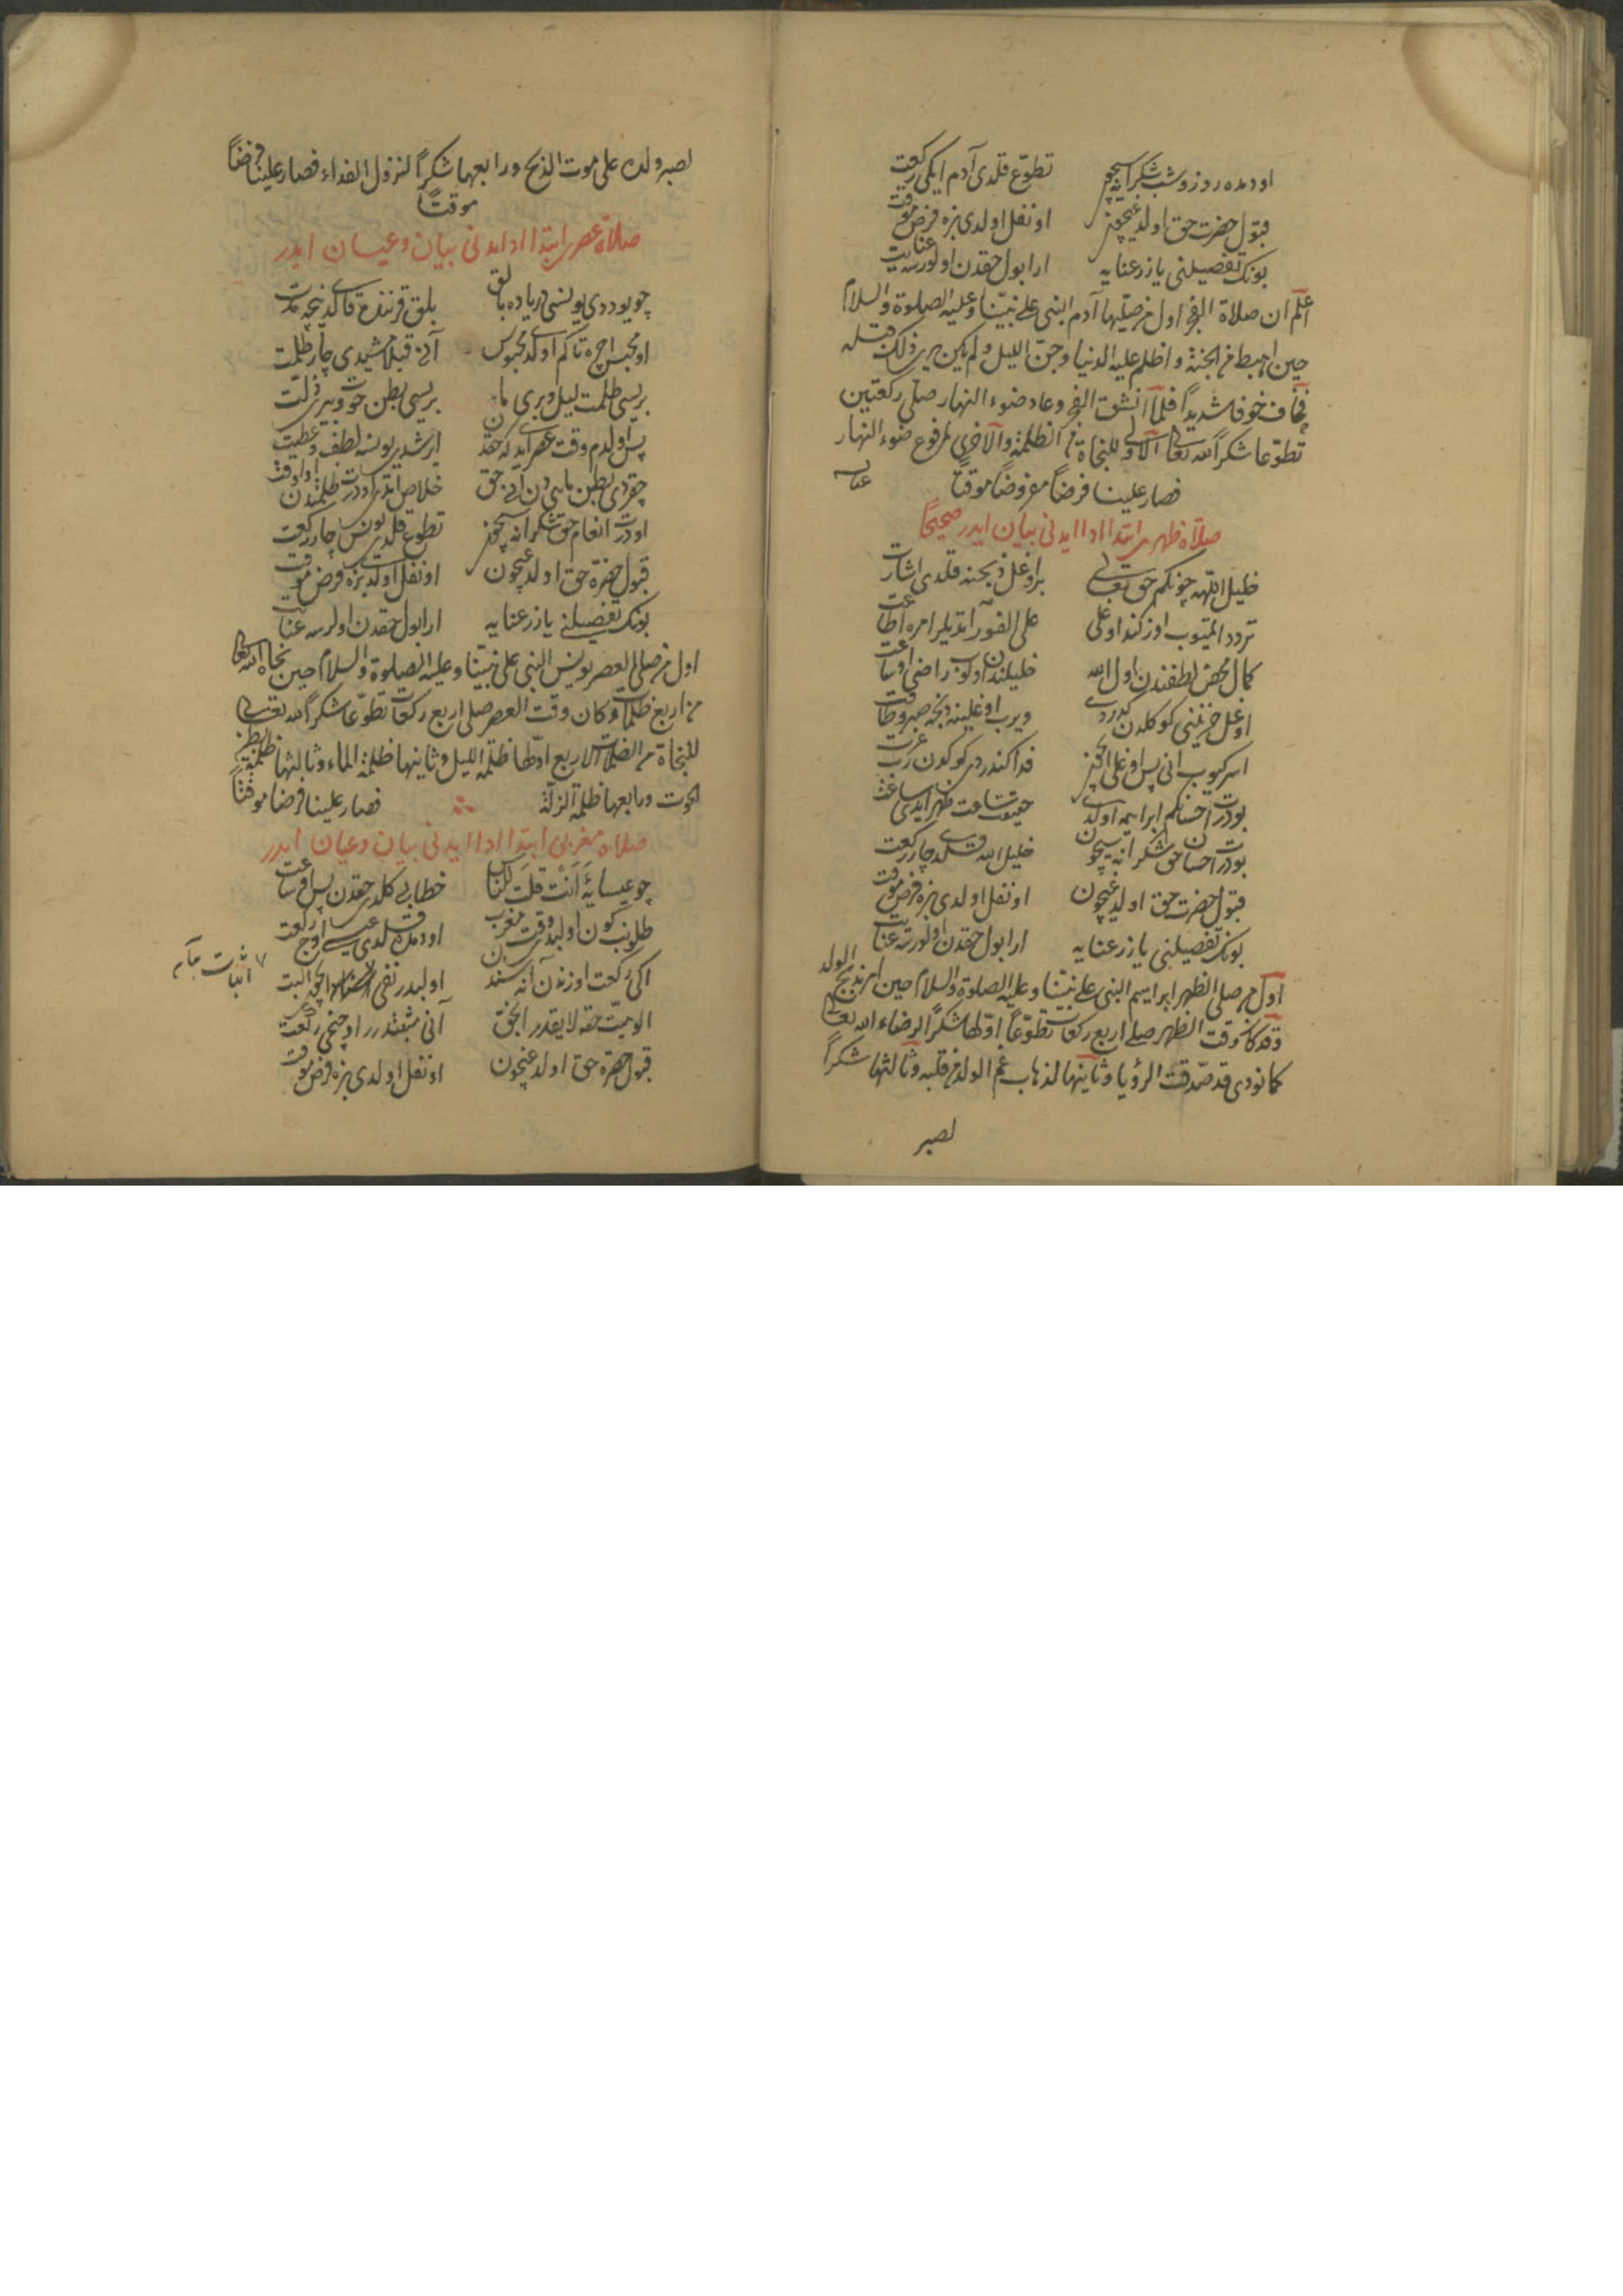 اودمده روز وشب شكرانه سيچون تطوّع قلدى آدم ايكى ركعت
قبول حضرت حق اولديغيچون او نفل اولدى بزه فرض موقت
بونك تفصيلنى يازر عنايه ارا بول حقدن اولورسه عنايت
اعلم ان صلاة الفجر اول من صلّيها آدم النبى على نبيّنا وعليه الصلوة والسلام
حين اهبط من الجنة واظلم عليه الدنيا وجنّ الليل ولم يكن يرى ذلك قبله
فخاف خوفا شديداً فلمّا انشق الفجر وعاد ضوء النهار صلّى ركعتين
تطوّعا شكراً لله تعالى الاولى للنجاة من الظلمة والاخرى لرجوع ضوء النهار
فصار علينا فرضاً مفروضاً موقتاً عنايه
صلاة ظهرى ابتدا ادا ايدنى بيان ايدر صحيحا
خليل اللّهه چونكم حق تعالى براوغل ذبحنه قلدى اشارت
على الفور ايتديلر امره اطاعت
كمال محض لطفندن اول الله خليلندن اولوب راضى او ساعت
اوغل حزنينى كوكلدن كدردى ويرب اوغلينه ذبحه صبر وطاقت
بودرت احسانكم ابراهيمه اولدى ساعت ظهر ايدى
بودرت احسان حق شكرانه سيچون خليل الله قلدى چار ركعت
قبول حضرت حق اولديغيچون او نفل اولدى بزه فرض موقت
بونك تفصيلينى يازر عنايه ارا بول حقدن اولورسه عنايت
اول من صلى الظهر ابراهيم النبى على نبيّنا وعليه الصلوة والسلام حين امر بذبح الولد
وقد كان وقت الظهر صلى اربع ركعات تطوّعاً اوّلها شكراً لرضاء الله تعالى
كما نودى قد صدّقت الرؤيا وثانيها لذهاب غم الولد من قلبه وثالثها شكراً
لصبر
لصبر ولده على موت الذبح ورابعها شكراً لنزول الفداء فصار علينا فرضاً
موقتاً
صلاة عصرى ابتدا ادا ايدنى بيان وعيان ايدر
چو يوددى يونسى درياده بالق بلق قرننده قالدى نيچه مدت
او محبس اچره تاكم اولدى محبوس آنى قپلامشيدى چار ظلمت
بريسى ظلمت ليل وبرى ماء بريسى بطن حوت وبرى ذلت
پس اولدم وقت عصر ايدى كه حقدن ايرشدى يونسه لطف وعطيت
چقردى بطن ماهيدن انى حق خلاص ايتدى او درت ظلمتدن او اوقت
او درت انعام حق شكرانه سيچون تطوع قلدى يونس چار ركعت
قبول حضرة حق اولديغيچون او نفل اولدى بزه فرض موقت
بونك تفصيلنى يازر عنايه ارا بول حقدن اولرسه عنايت
اول من صلى العصر يونس النبى على نبيّنا وعليه الصلوة والسلام حين نجاه الله تعالى
من اربع ظلمات وكان وقت العصر صلى اربع ركعات تطوّعا شكراً لله تعالى
للنجاة من الظلمات الاربع اوّلها ظلمة الليل وثانيها ظلمة الماء وثالثها ظلمة بطن
الحوت ورابعها ظلمة الزلة فصار علينا فرضا موقتاً
صلاة مغربى ابتدا ادا ايدنى بيان وعيان ايدر
چو عيسايه أَأَنْتَ قلتَ للناس خطابى كلدى حقدن پس او ساعت
طلونب كون اولدى وقت مغرب اودمده قلدى عيسى اوج ركعت
اكى ركعت اوزندن آنه سندن اولبدر نفى الحق البت
اثبات
الوهيّت حقه لايقدر الحق آنى مثبتدرر اوچنجى ركعت
قبول حضرة حق اولديغيچون او نفل اولدى بزه فرض موقت